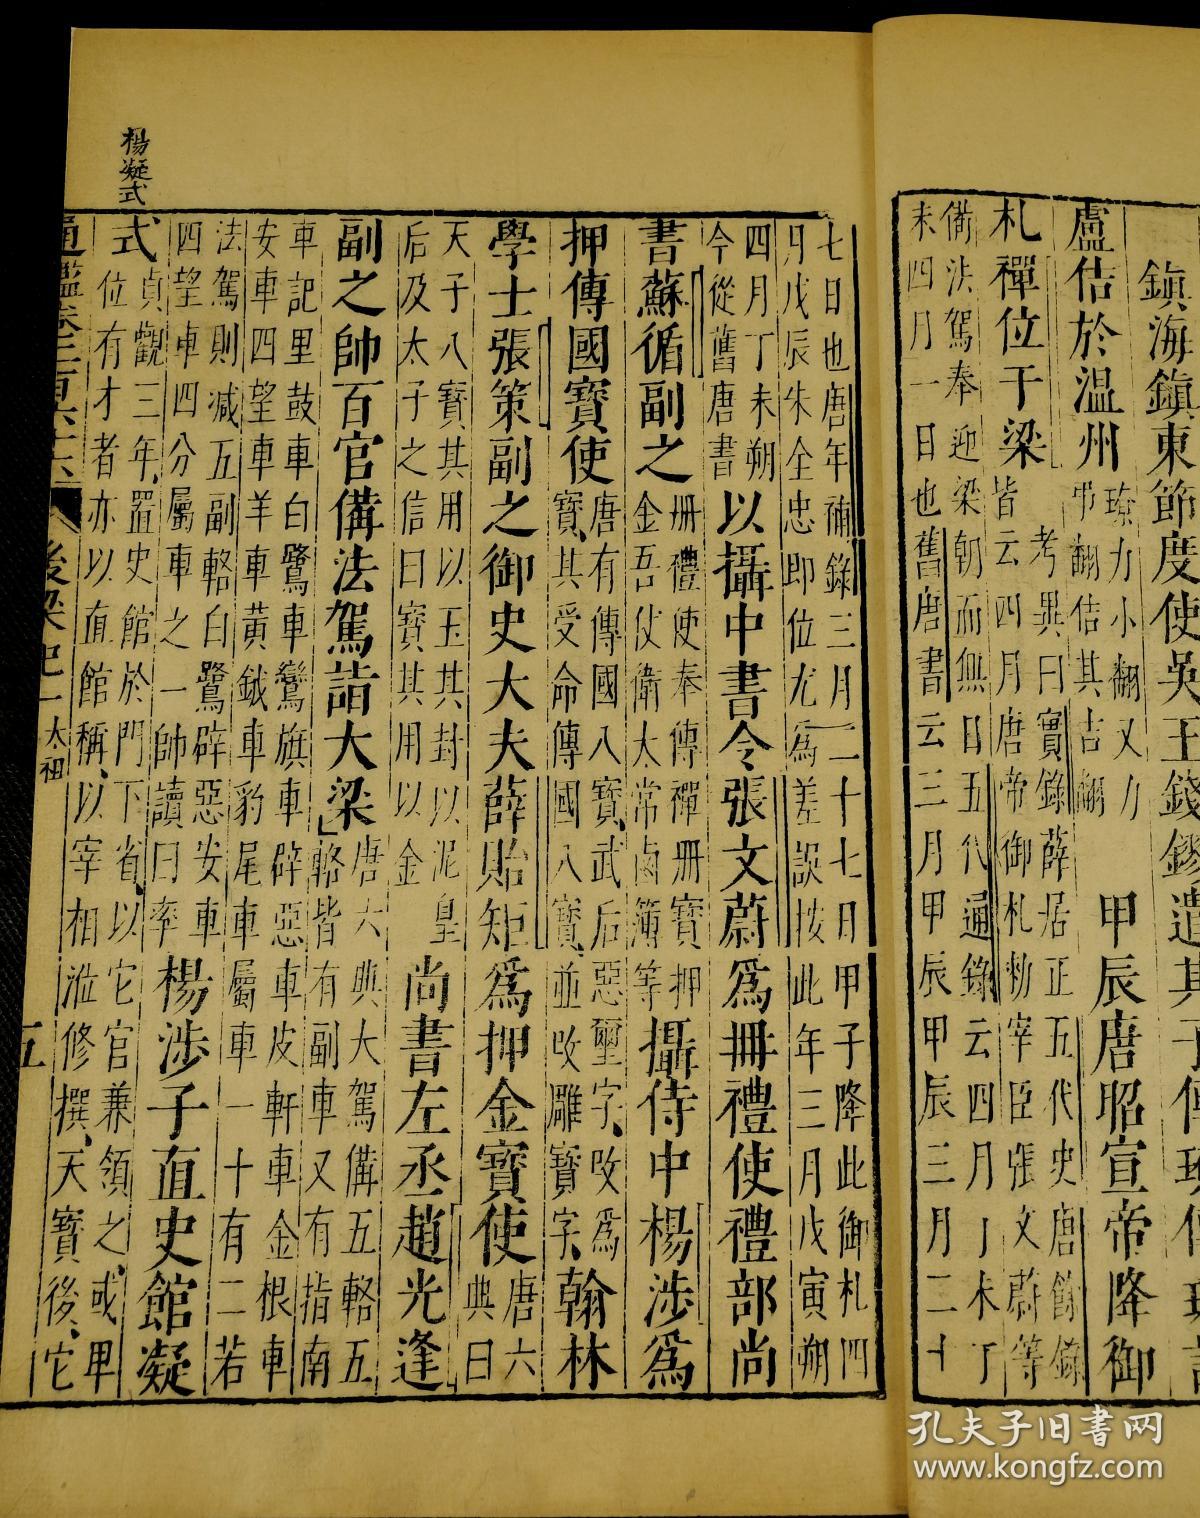 鎮海鎮東節度使吳王錢鏐遣其子傳
盧佶於温州
甲辰唐昭宣帝降御
札禪位于梁
考異曰實錄薛居正五代史唐餘錄
皆云四月唐帝御札勑宰臣張文蔚等
備法駕奉迎梁朝而無日五代通錄云四月丁未丁
未四月一日也舊唐書云三月甲辰甲辰三月二十
七日也唐年補錄三月二十七日甲子降此御札四
月戊辰朱全忠即位尤爲差誤按此年三月戊寅朔
四月丁未朔
今從舊唐書
以攝中書令張文蔚爲冊禮使禮部尚
書蘇循副之
冊禮使奉傳禪冊寶押
金吾仗衛太常鹵簿等
攝侍中楊涉爲
押傳國寶使
唐有傳國八寶武后惡璽字改爲
寶其受命傳國八寶並改雕寶字
翰林
學士張策副之御史大夫薛貽矩爲押金寶使
唐六
典曰
天子八寶其用以玉其封以泥皇
后及太子之信曰寶其用以金
尚書左丞趙光逢
副之帥百官備法駕詣大梁
唐六典大駕備五輅五
輅皆有副車又有指南
車記里鼓車白鷺車鸞旗車辟惡車皮軒車金根車
安車四望車羊車黃鉞車豹尾車屬車一十有二若
法駕則減五副輅白鷺辟惡安車
四望車四分屬車之一帥讀曰率
楊涉子直史館凝
楊凝式
式
貞觀三年置史館於門下省以它官兼領之或卑
位有才者亦以直館稱以宰相涖修撰天寶後它
通鑑卷二百六十六
後梁紀一
太祖
五
孔夫子旧書网
www.kongfz.com